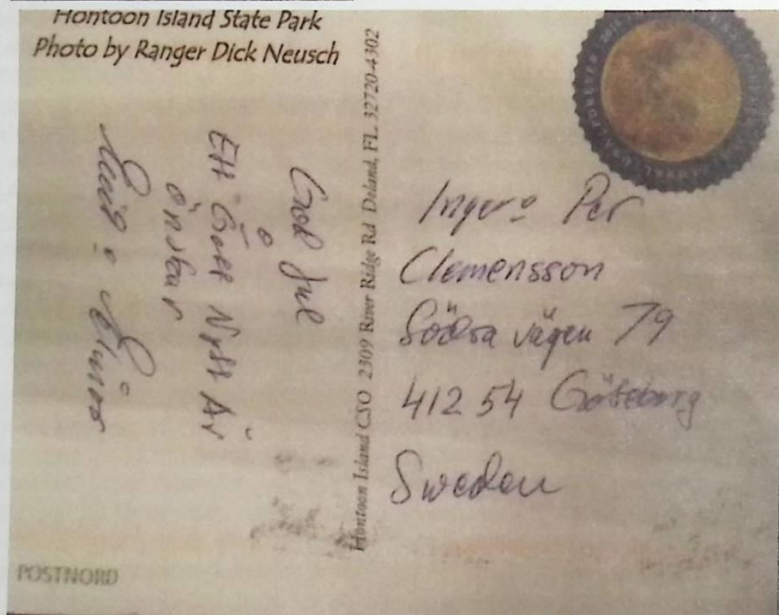 Hontoon Island State Park
Photo by Ranger Dick Neusch
God Jul
o
Ett Gott Nytt År
önskar
Emil o
Hontoon Island CSO 2309 River Ridge Rd Deland, FL 32720-4302
FOREVER
Inger o Per
Clemensson
Södra vägen 79
412 54 Göteborg
Sweden
POSTNORD